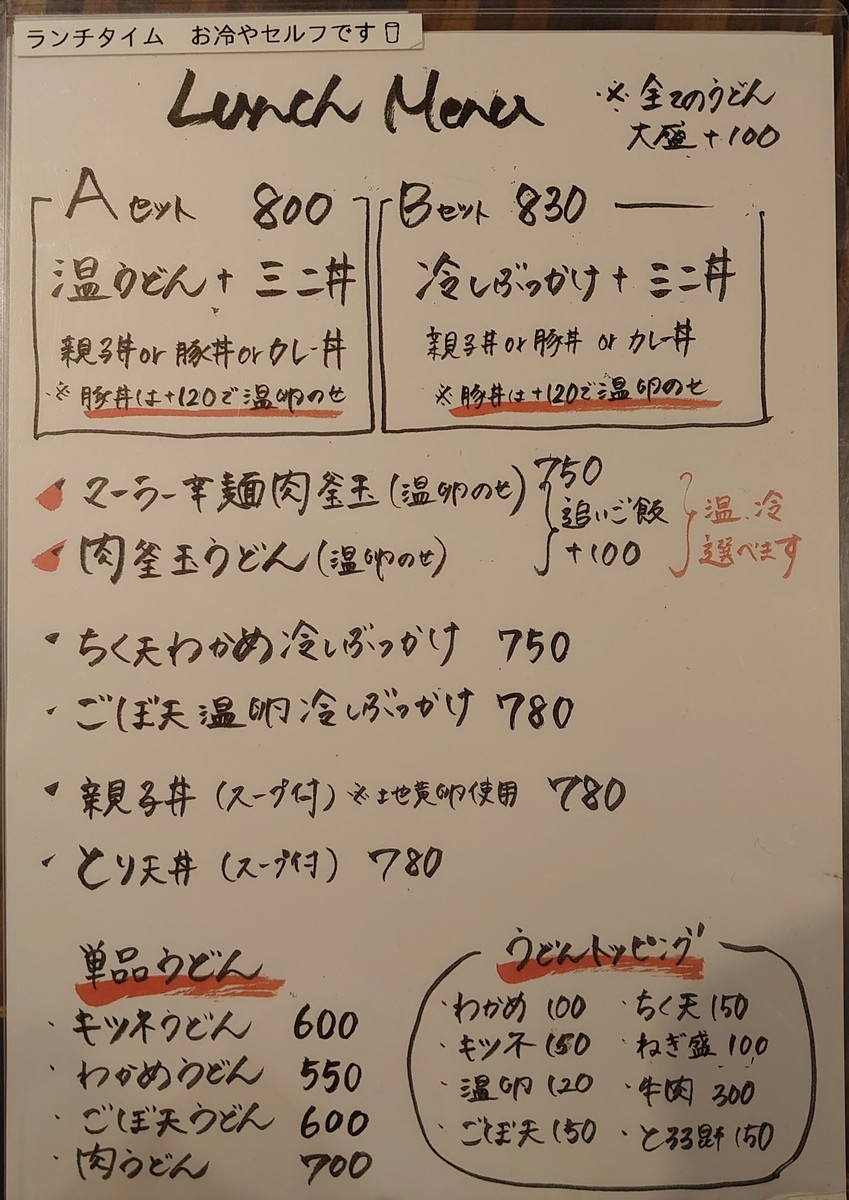 ランチタイム お冷やセルフです
Lunch Menu
※全てのうどん
大盛+100
Aセット 800
温うどん+ミニ丼
親子丼or豚丼orカレー丼
※豚丼は+120で温卵のせ
Bセット 830
冷しぶっかけ+ミニ丼
親子丼or豚丼orカレー丼
※豚丼は+120で温卵のせ
マーラー辛麺肉釜玉(温卵のせ) 750
肉釜玉うどん(温卵のせ)
追いご飯
+100
温、冷
選べます
ちく天わかめ冷しぶっかけ 750
ごぼ天温卵冷しぶっかけ 780
親子丼(スープ付)※地黄卵使用 780
とり天丼(スープ付) 780
単品うどん
・キツネうどん 600
・わかめうどん 550
・ごぼ天うどん 600
・肉うどん 700
うどんトッピング
・わかめ 100 ・ちく天 150
・キツネ 150 ・ねぎ盛 100
・温卵 120 ・牛肉 300
・ごぼ天 150 ・とろろ昆 150